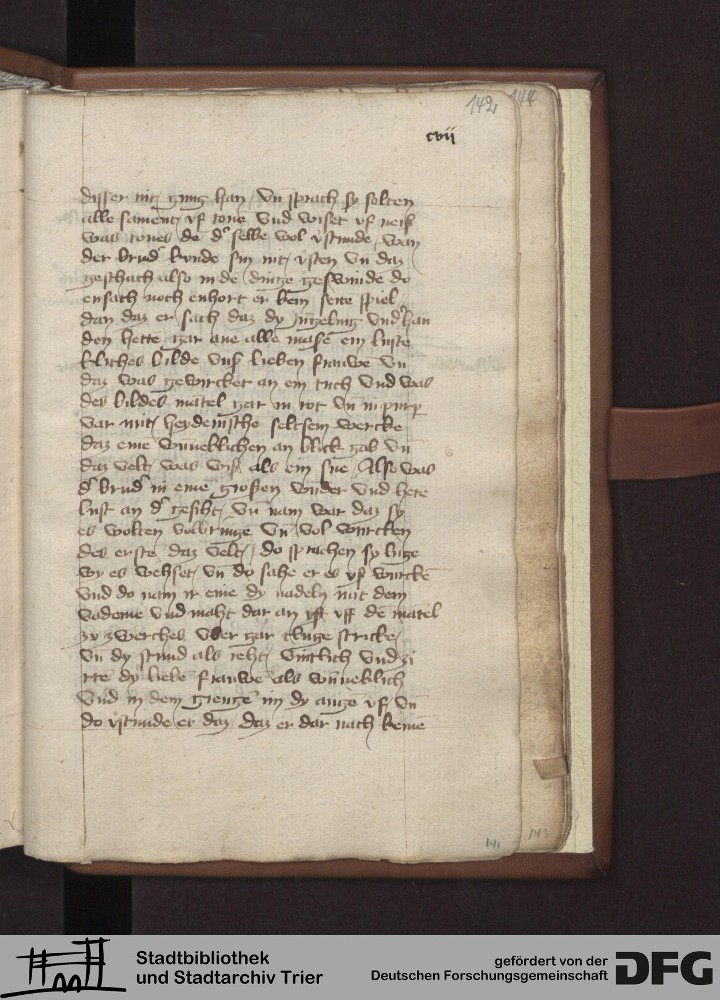 142 144
cvii
disser nit gnug han / vn sprach sy solten
alle sament vf tone vnd wiset vf neiß
was tones de d' selbe wol v'stunde / wan
der brud' kunde sin nit v'sten vn daz
geschach also in de dinge geswinde do
ensach noch enhort er kein seite spiel
dan daz er sach daz dy jngeling vnd' han
den hette gar ane alle mase ein luste
kliches bilde vnß lieben frauwe vn
daz was gewircket an ein tuch vnd was
des bildes matel gar in rot vn in purp
var mit heydenische seltsem wercke
daz eine wuneklichen an blick gab vn
daz velt was wiß als ein sne / Also was
d' brud' in eine großen wnder vnd hete
lust an d' gesiht / vn nam war daz sy
es wolten volbringe vn vol wurcken
des erste daz velt / do sprachen sy luge
wy es wehset / vn do sahe er es vf wurcke
vnd do nam ir eine dy nadeln mit dem
vademe vnd maht dar an yst vff de matel
zu zwerches vber gar cluge stricke /
vn dy stund als reht vintlich vnd zi
rte dy liebe frauwe als wuneklich
vnd in dem gienge im dy auge vf / vn
do v'stunde er daz / daz er dar nach keine
141 143
Stadtbibliothek
und Stadtarchiv Trier
gefördert von der
Deutschen Forschungsgemeinschaft
DFG